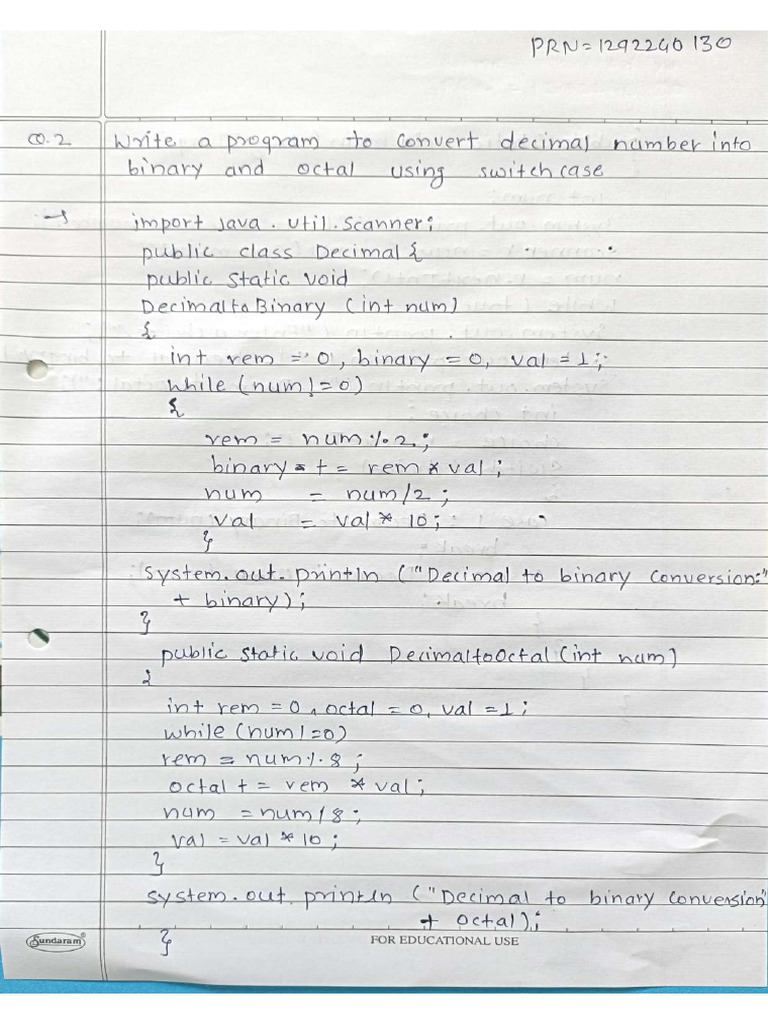 PRN=1292240130
Q.2 Write a program to convert decimal number into
binary and octal using switch case
→ import java.util.Scanner;
public class Decimal{
public static void
DecimaltoBinary (int num)
{
int rem = 0, binary = 0, val = 1;
while (num!=0)
{
rem = num%2;
binary += rem * val;
num = num/2;
val = val * 10;
}
system.out.println ("Decimal to binary conversion:"
+ binary);
}
public static void DecimaltoOctal (int num)
{
int rem = 0, octal = 0, val = 1;
while (num!=0)
rem = num%8;
octal += rem * val;
num = num/8;
val = val * 10;
}
system.out.println ("Decimal to binary conversion"
+ octal);
}
Sundaram®
FOR EDUCATIONAL USE